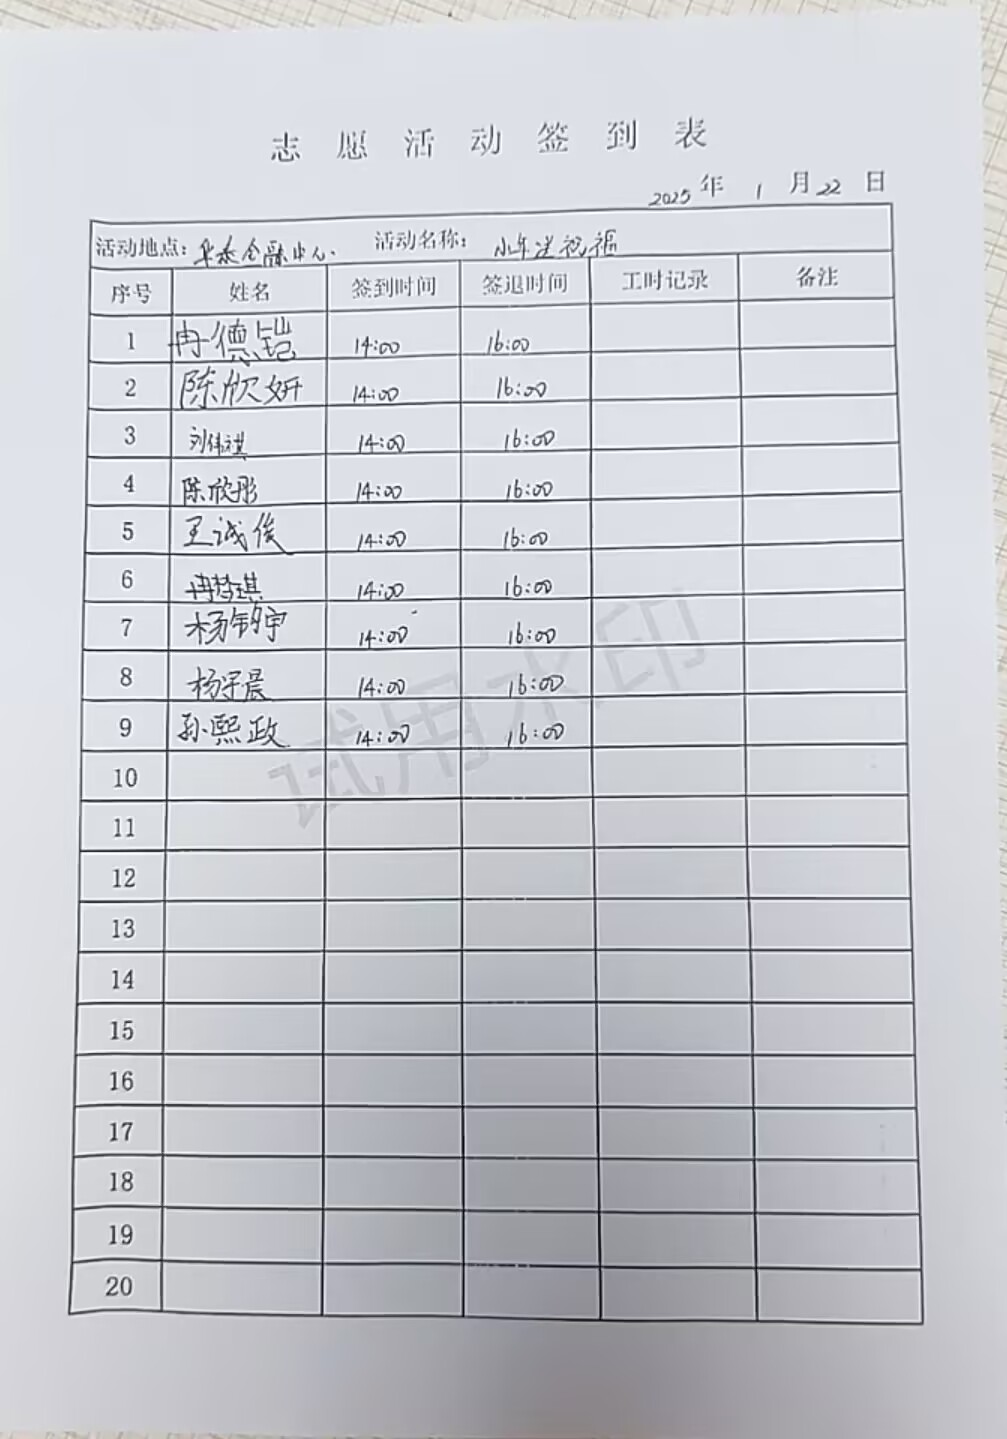 志愿活动签到表
2025年1月22日
活动地点：华泰金融中心. 活动名称：小年送祝福
序号 姓名 签到时间 签退时间 工时记录 备注
1 冉德铠 14:00 16:00
2 陈欣妍 14:00 16:00
3 刘伟祺 14:00 16:00
4 陈欣彤 14:00 16:00
5 王诚俊 14:00 16:00
6 冉梦琪 14:00 16:00
7 杨钧宇 14:00 16:00
8 杨宇晨 14:00 16:00
9 孙熙政 14:00 16:00
试用水印
10
11
12
13
14
15
16
17
18
19
20